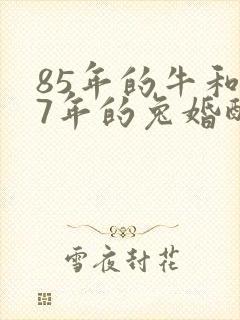 85年的牛和
7年的兔婚配
雪夜封花